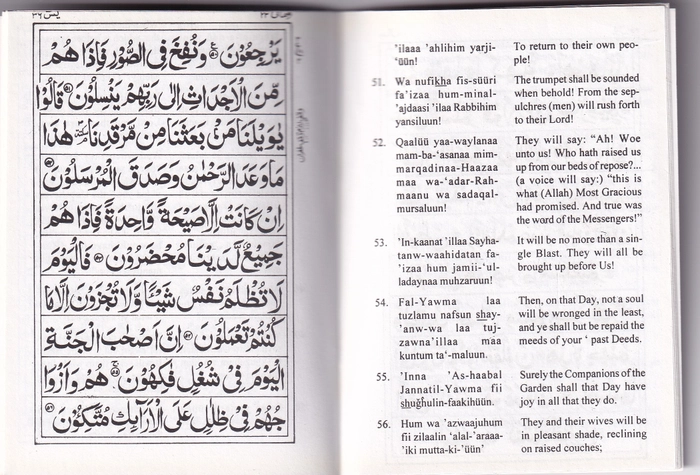 يٰسٓ ٣٦
٢٣
يَرْجِعُوْنَ وَنُفِخَ فِى الصُّوْرِ فَاِذَا هُمْ
مِّنَ الْاَجْدَاثِ اِلٰى رَبِّهِمْ يَنْسِلُوْنَ قَالُوْا
يٰوَيْلَنَا مَنْۢ بَعَثَنَا مِنْ مَّرْقَدِنَا هٰذَا
مَا وَعَدَ الرَّحْمٰنُ وَصَدَقَ الْمُرْسَلُوْنَ
اِنْ كَانَتْ اِلَّا صَيْحَةً وَّاحِدَةً فَاِذَا هُمْ
جَمِيْعٌ لَّدَيْنَا مُحْضَرُوْنَ فَالْيَوْمَ
لَا تُظْلَمُ نَفْسٌ شَيْـًٔا وَّلَا تُجْزَوْنَ اِلَّا مَا
كُنْتُمْ تَعْمَلُوْنَ اِنَّ اَصْحٰبَ الْجَنَّةِ
الْيَوْمَ فِىْ شُغُلٍ فٰكِهُوْنَ هُمْ وَاَزْوَا
جُهُمْ فِىْ ظِلٰلٍ عَلَى الْاَرَآئِكِ مُتَّكِـُٔوْنَ
'ilaaa 'ahlihim yarji-
'üün!
To return to their own peo-
ple!
51. Wa nufikha fis-süüri
fa'izaa hum-minal-
'ajdaasi 'ilaa Rabbihim
yansiluun!
The trumpet shall be sounded
when behold! From the sep-
ulchres (men) will rush forth
to their Lord!
52. Qaalüü yaa-waylanaa
mam-ba-'asanaa mim-
marqadinaa-Haazaa
maa wa-'adar-Rah-
maanu wa sadaqal-
mursaluun!
They will say: "Ah! Woe
unto us! Who hath raised us
up from our beds of repose?...
(a voice will say:) "this is
what (Allah) Most Gracious
had promised. And true was
the word of the Messengers!"
53. 'In-kaanat 'illaa Sayha-
tanw-waahidatan fa-
'izaa hum jamii-'ul-
ladaynaa muhzaruun!
It will be no more than a sin-
gle Blast. They will all be
brought up before Us!
54. Fal-Yawma laa
tuzlamu nafsun shay-
'anw-wa laa tuj-
zawna'illaa maa
kuntum ta'-maluun.
Then, on that Day, not a soul
will be wronged in the least,
and ye shall but be repaid the
meeds of your ' past Deeds.
55. 'Inna 'As-haabal
Jannatil-Yawma fii
shughulin-faakihüün.
Surely the Companions of the
Garden shall that Day have
joy in all that they do.
56. Hum wa 'azwaajuhum
fii zilaalin 'alal-'araaa-
'iki mutta-ki-'üün'
They and their wives will be
in pleasant shade, reclining
on raised couches;